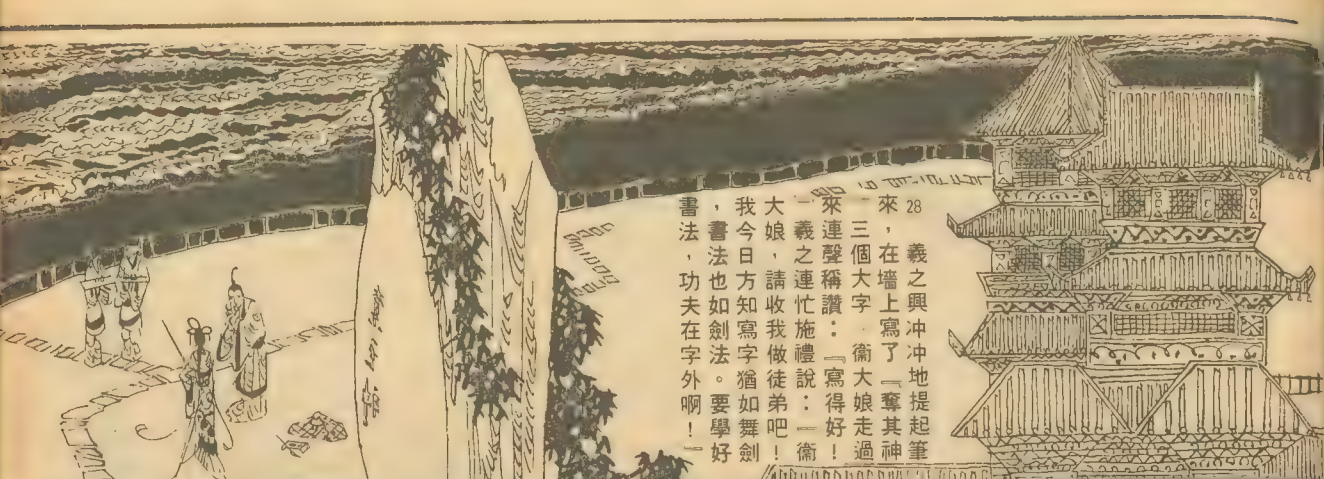 28 羲之興冲冲地提起筆
來，在墻上寫了『奪其神
』三個大字．衞大娘走過
來連聲稱讚：『寫得好！
』羲之連忙施禮說：『衞
大娘，請收我做徒弟吧！
我今日方知寫字猶如舞劍
，書法也如劍法。要學好
書法，功夫在字外啊！』